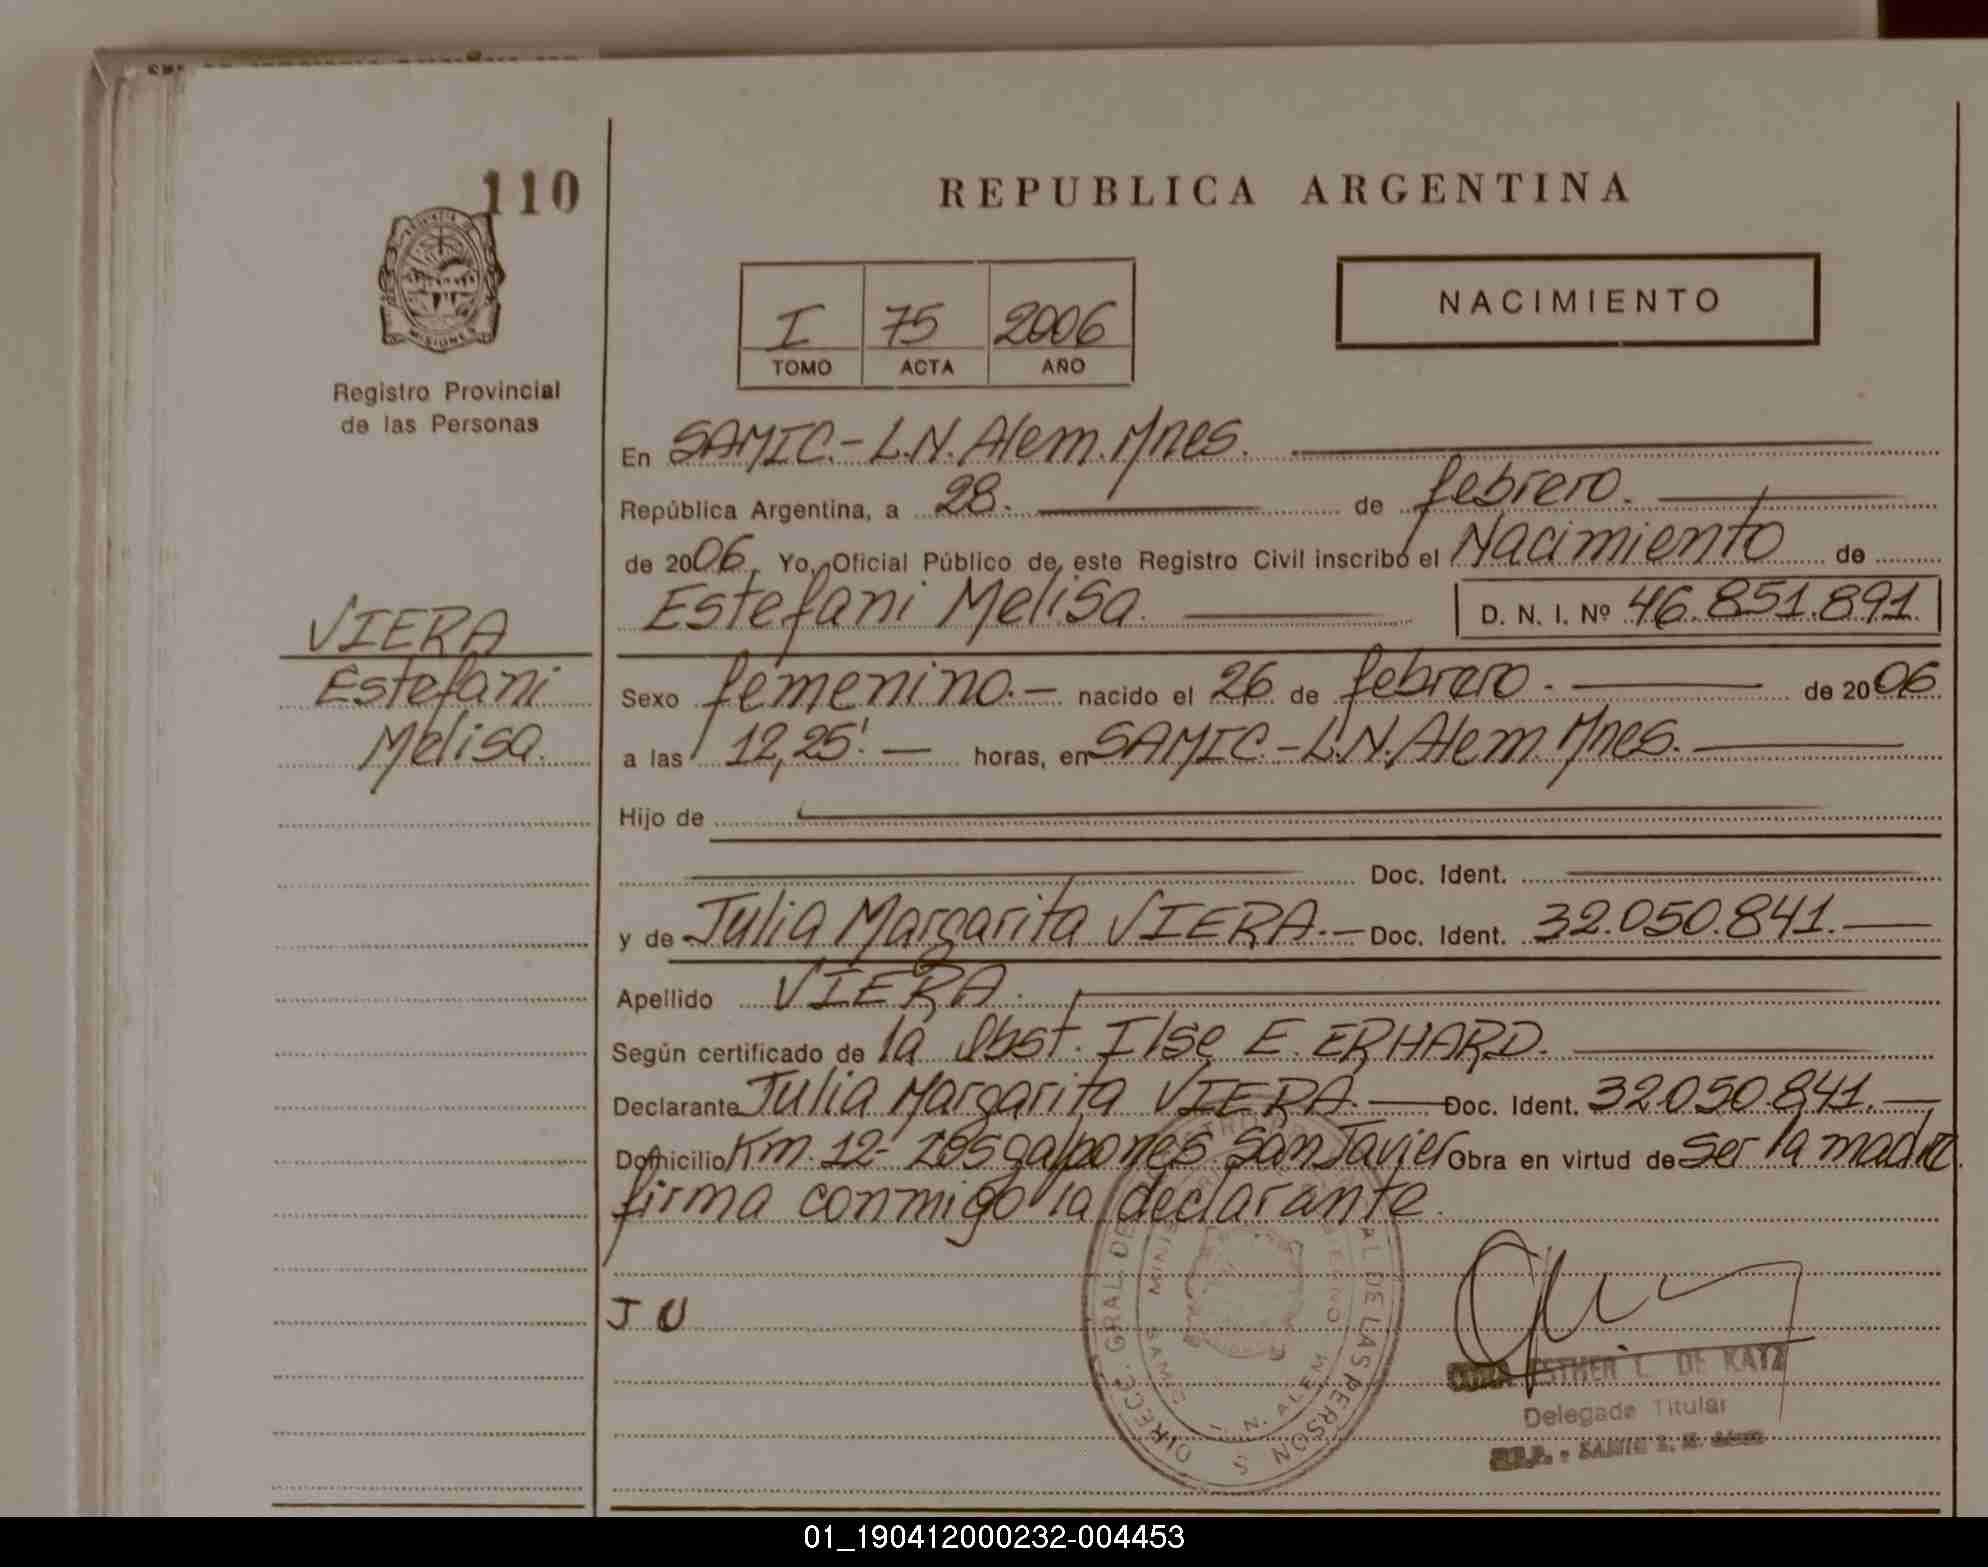 110
REPUBLICA ARGENTINA
PROVINCIA DE
MISIONES
Registro Provincial
de las Personas
I 75 2006
TOMO ACTA AÑO
NACIMIENTO
En SAMIC.- L.N. Alem. Mnes.
República Argentina, a 28. de febrero.
de 2006. Yo, Oficial Público de este Registro Civil inscribo el Nacimiento de
Estefani Melisa. D. N. I. Nº 46.851.891.
VIERA
Estefani
Melisa.
Sexo femenino.- nacido el 26 de febrero. de 2006
a las 12,25'. horas, en SAMIC.- L.N. Alem. Mnes.
Hijo de
Doc. Ident.
y de Julia Margarita VIERA.- Doc. Ident. 32.050.841.
Apellido VIERA.
Según certificado de la Obst. Ilse E. ERHARD.
Declarante Julia Margarita VIERA. Doc. Ident. 32.050.841.
Domicilio Km. 12- Los galpones San Javier Obra en virtud de ser la madre
firma conmigo la declarante.
J U
DIRECC. GRAL. DE
AL DE LAS PERSON S
SAMIC L. N. ALEM
ESTHER L. DE KATZ
Delegada Titular
SAMIC L. N. Alem
01_190412000232-004453